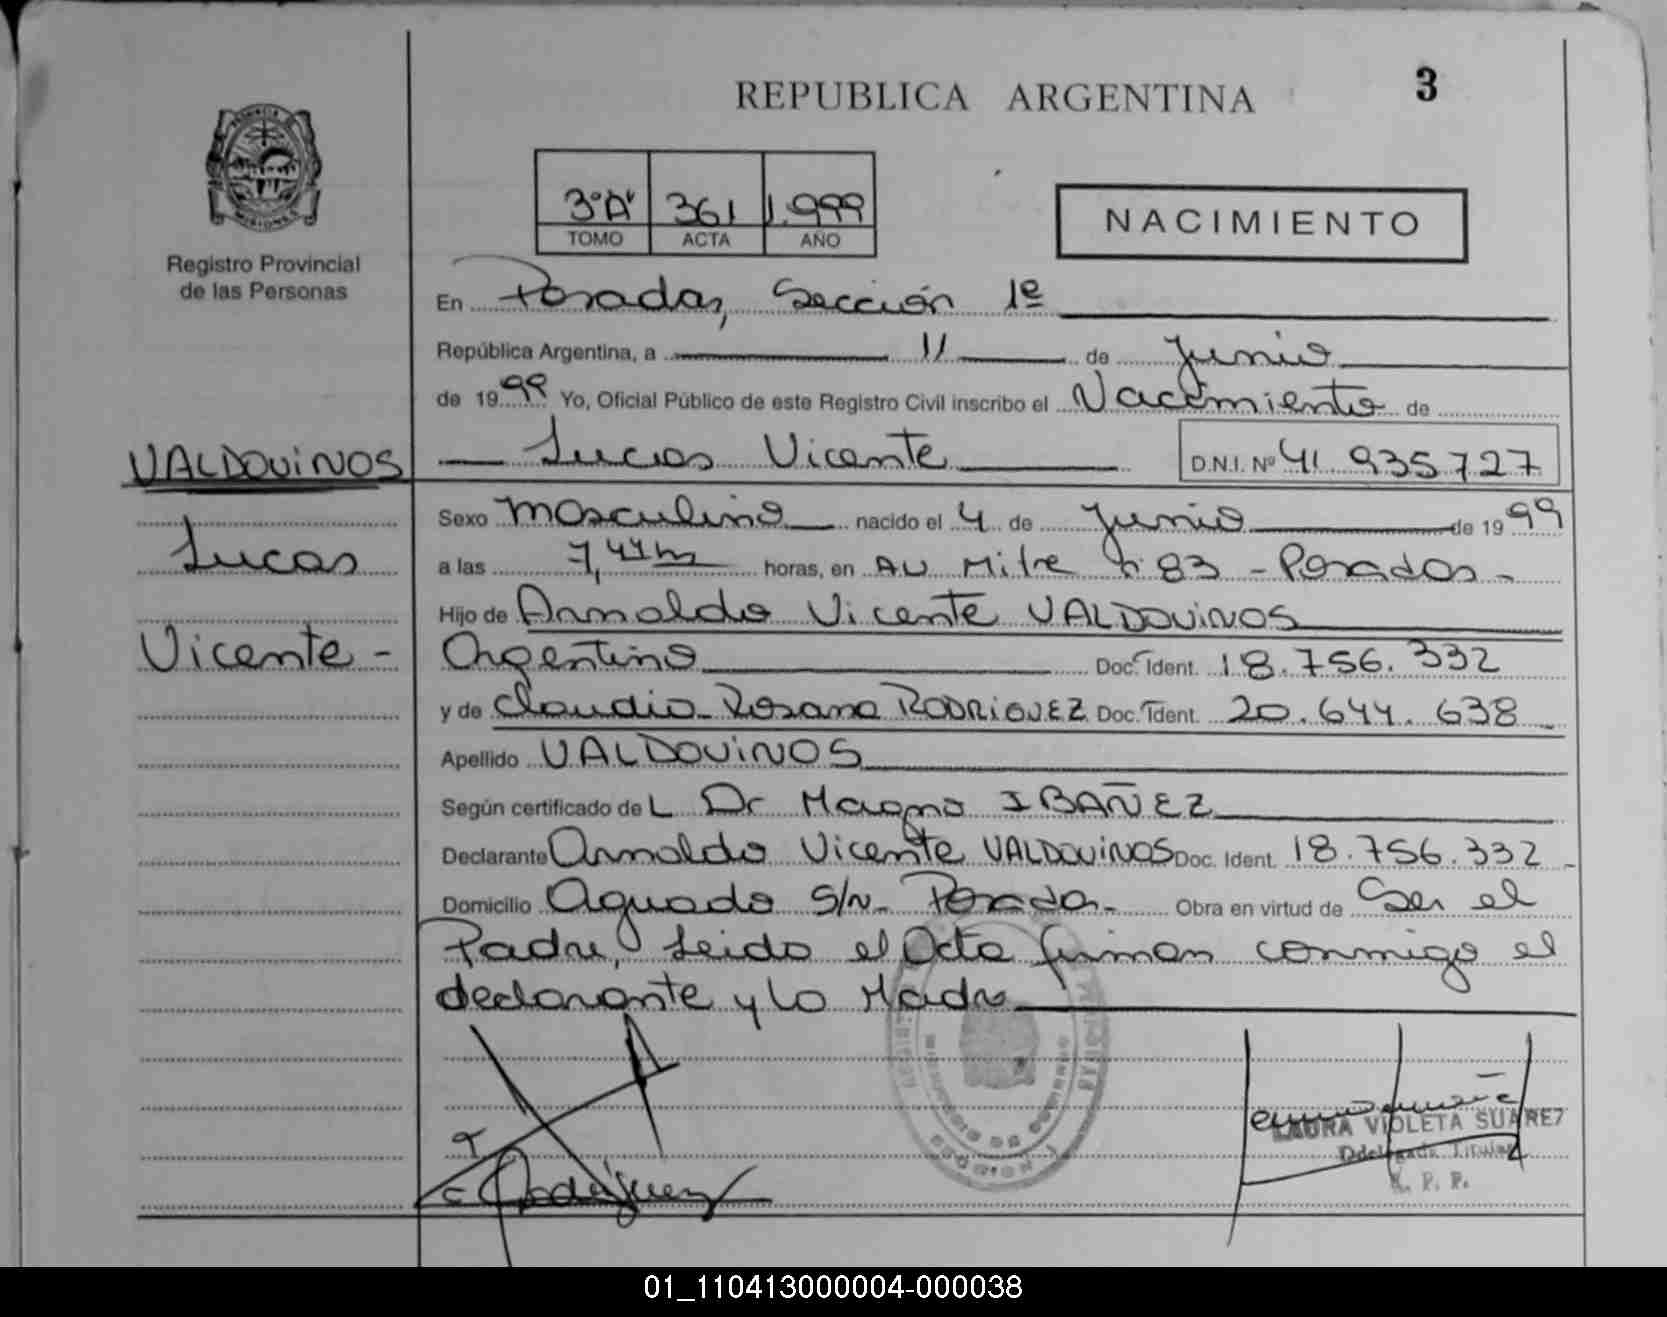 REPUBLICA ARGENTINA
3
PROVINCIA DE
MISIONES
Registro Provincial
de las Personas
3º"A" 361 1.999
TOMO ACTA AÑO
NACIMIENTO
En Posadas, Sección 1ª
República Argentina, a 11 de Junio
de 1999 Yo, Oficial Público de este Registro Civil inscribo el Nacimiento de
Lucas Vicente D.N.I. Nº 41 935727
VALDOUiNOS
Lucas
Vicente -
Sexo masculino nacido el 4 de Junio de 1999
a las 7,44 hs horas, en AU Mitre 83 - Posadas -
Hijo de Arnoldo Vicente VALDOUiNOS
Argentino Doc. Ident. 18.756.332
y de Claudia Rosana RODRiGUEZ Doc. Ident. 20.644.638
Apellido VALDOUiNOS
Según certificado de L Dr Magno IBAÑEZ
Declarante Arnoldo Vicente VALDOUiNOS Doc. Ident. 18.756.332
Domicilio Aguado S/N - Posadas - Obra en virtud de Ser el
Padre, Leida el Acta firman conmigo el
declarante y la Madre
MINISTERIO DE GOBIERNO
LAURA VIOLETA SUAREZ
Delegada Titular
R. P. P.
C Rodriguez
01_110413000004-000038